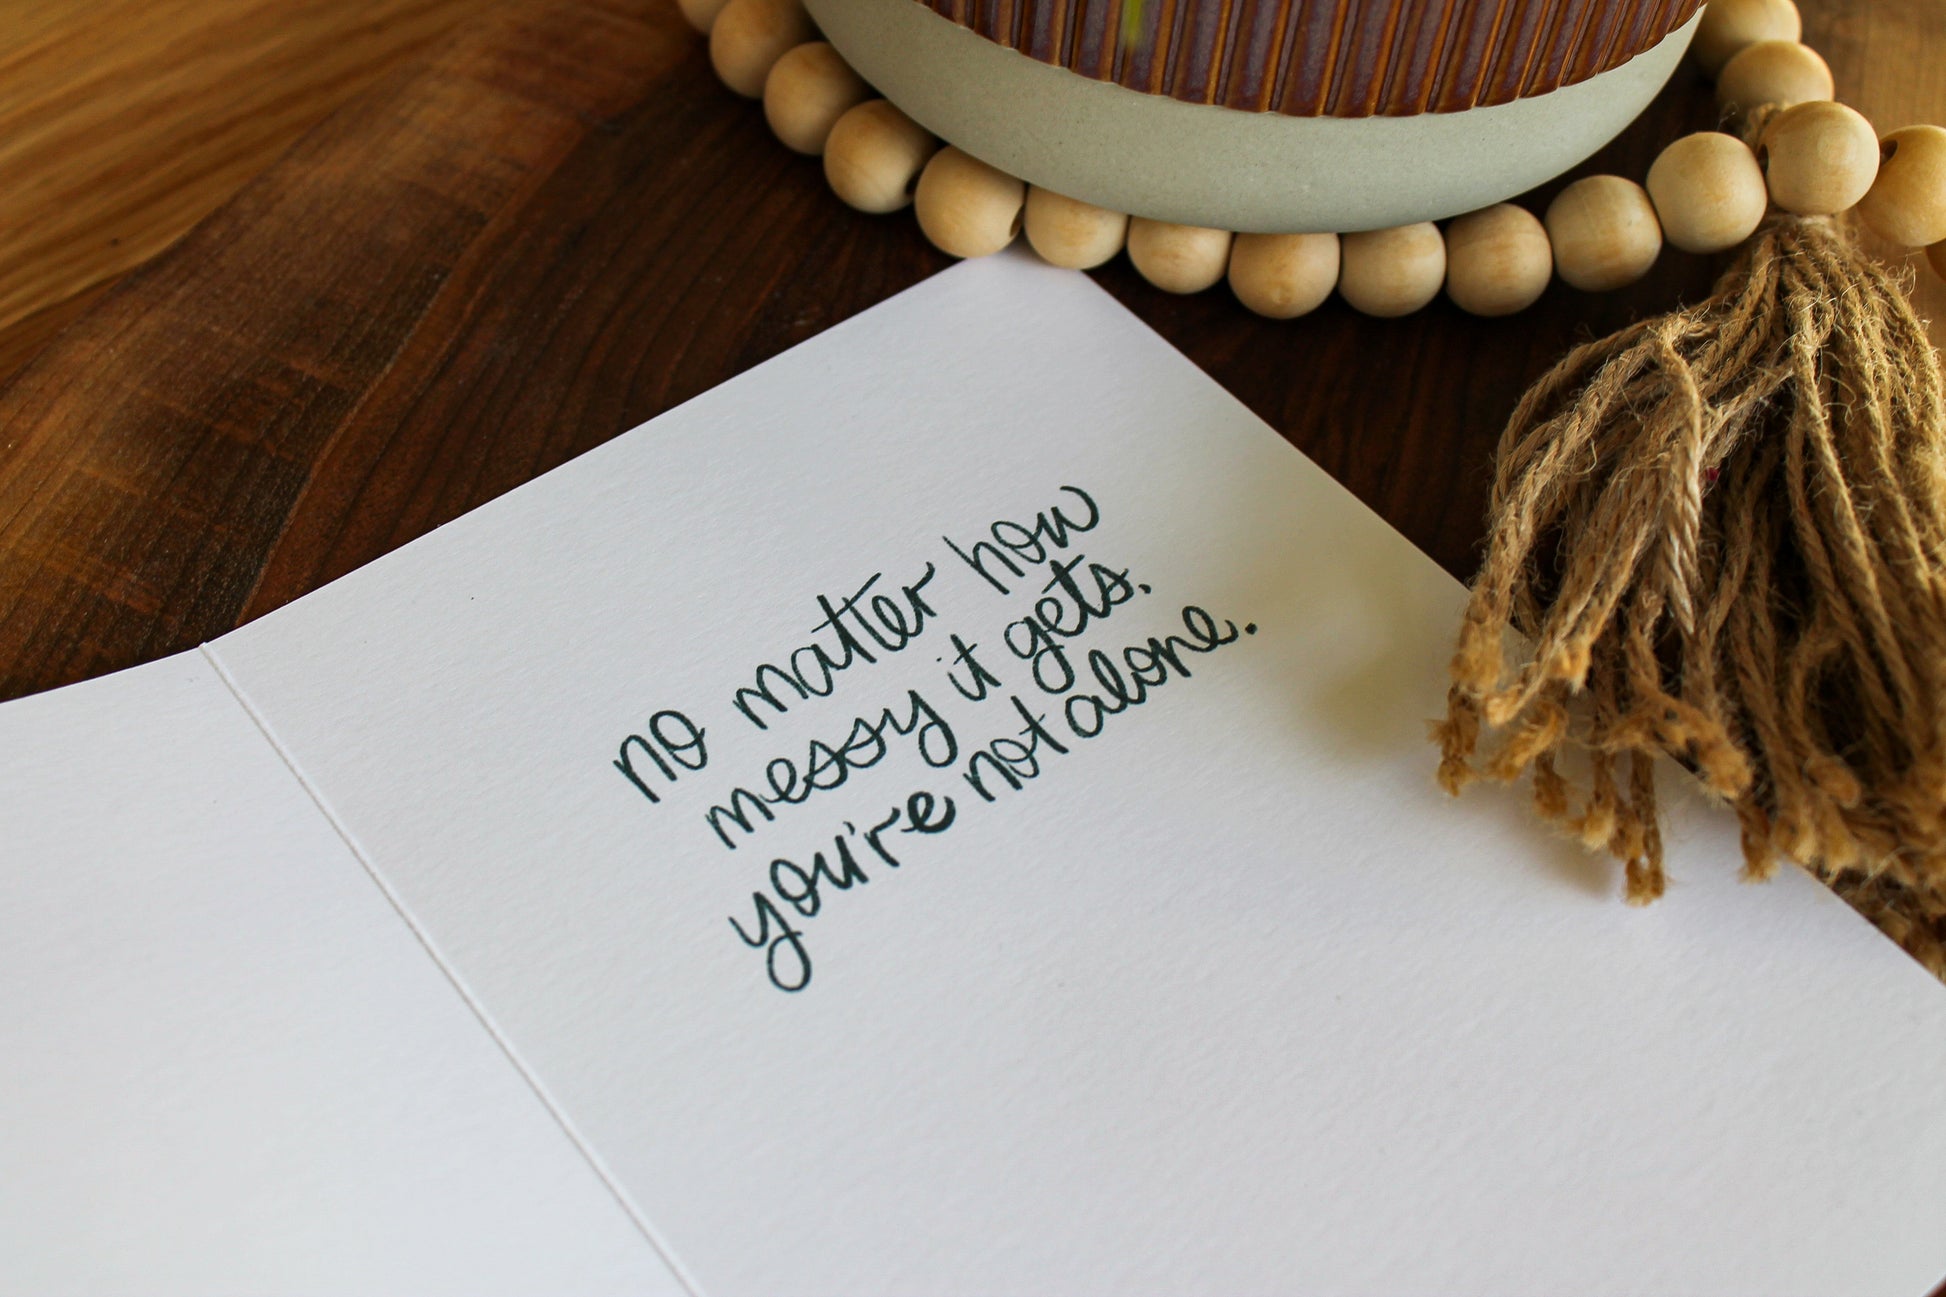 no matter how
messy it gets,
you're not alone.